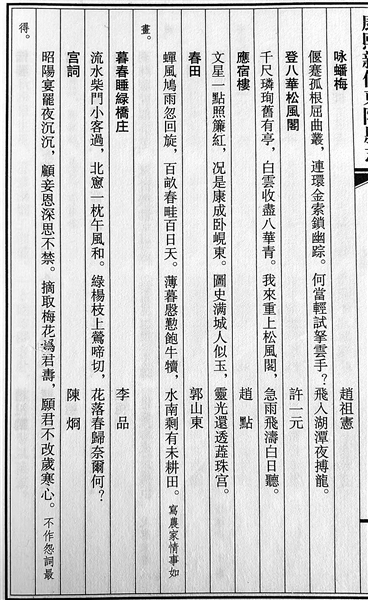 咏蟠梅　趙祖憲
偃蹇孤根屈曲叢，連環金索鎖幽踪。何當輕試拏雲手？飛入湖潭夜搏龍。
登八華松風閣　許一元
千尺璘珣舊有亭，白雲收盡八華青。我來重上松風閣，急雨飛濤白日聽。
應宿樓　趙點
文星一點照簾紅，况是康成卧峴東。圖史满城人似玉，靈光還透蕋珠宫。
春田　郭山東
蟬風鳩雨忽回旋，百畝春畦百日天。薄暮慇懃飽牛犢，水南剩有未耕田。寫農家情事如
畫。
暮春睡緑橋庄　李品
流水柴門小客過，北窻一枕午風和。綠楊枝上鶯啼切，花落春歸奈爾何？
宫詞　陳烱
昭陽宴罷夜沉沉，顧妾恩深思不禁。摘取梅花爲君壽，願君不改歲寒心。不作怨詞最
得。